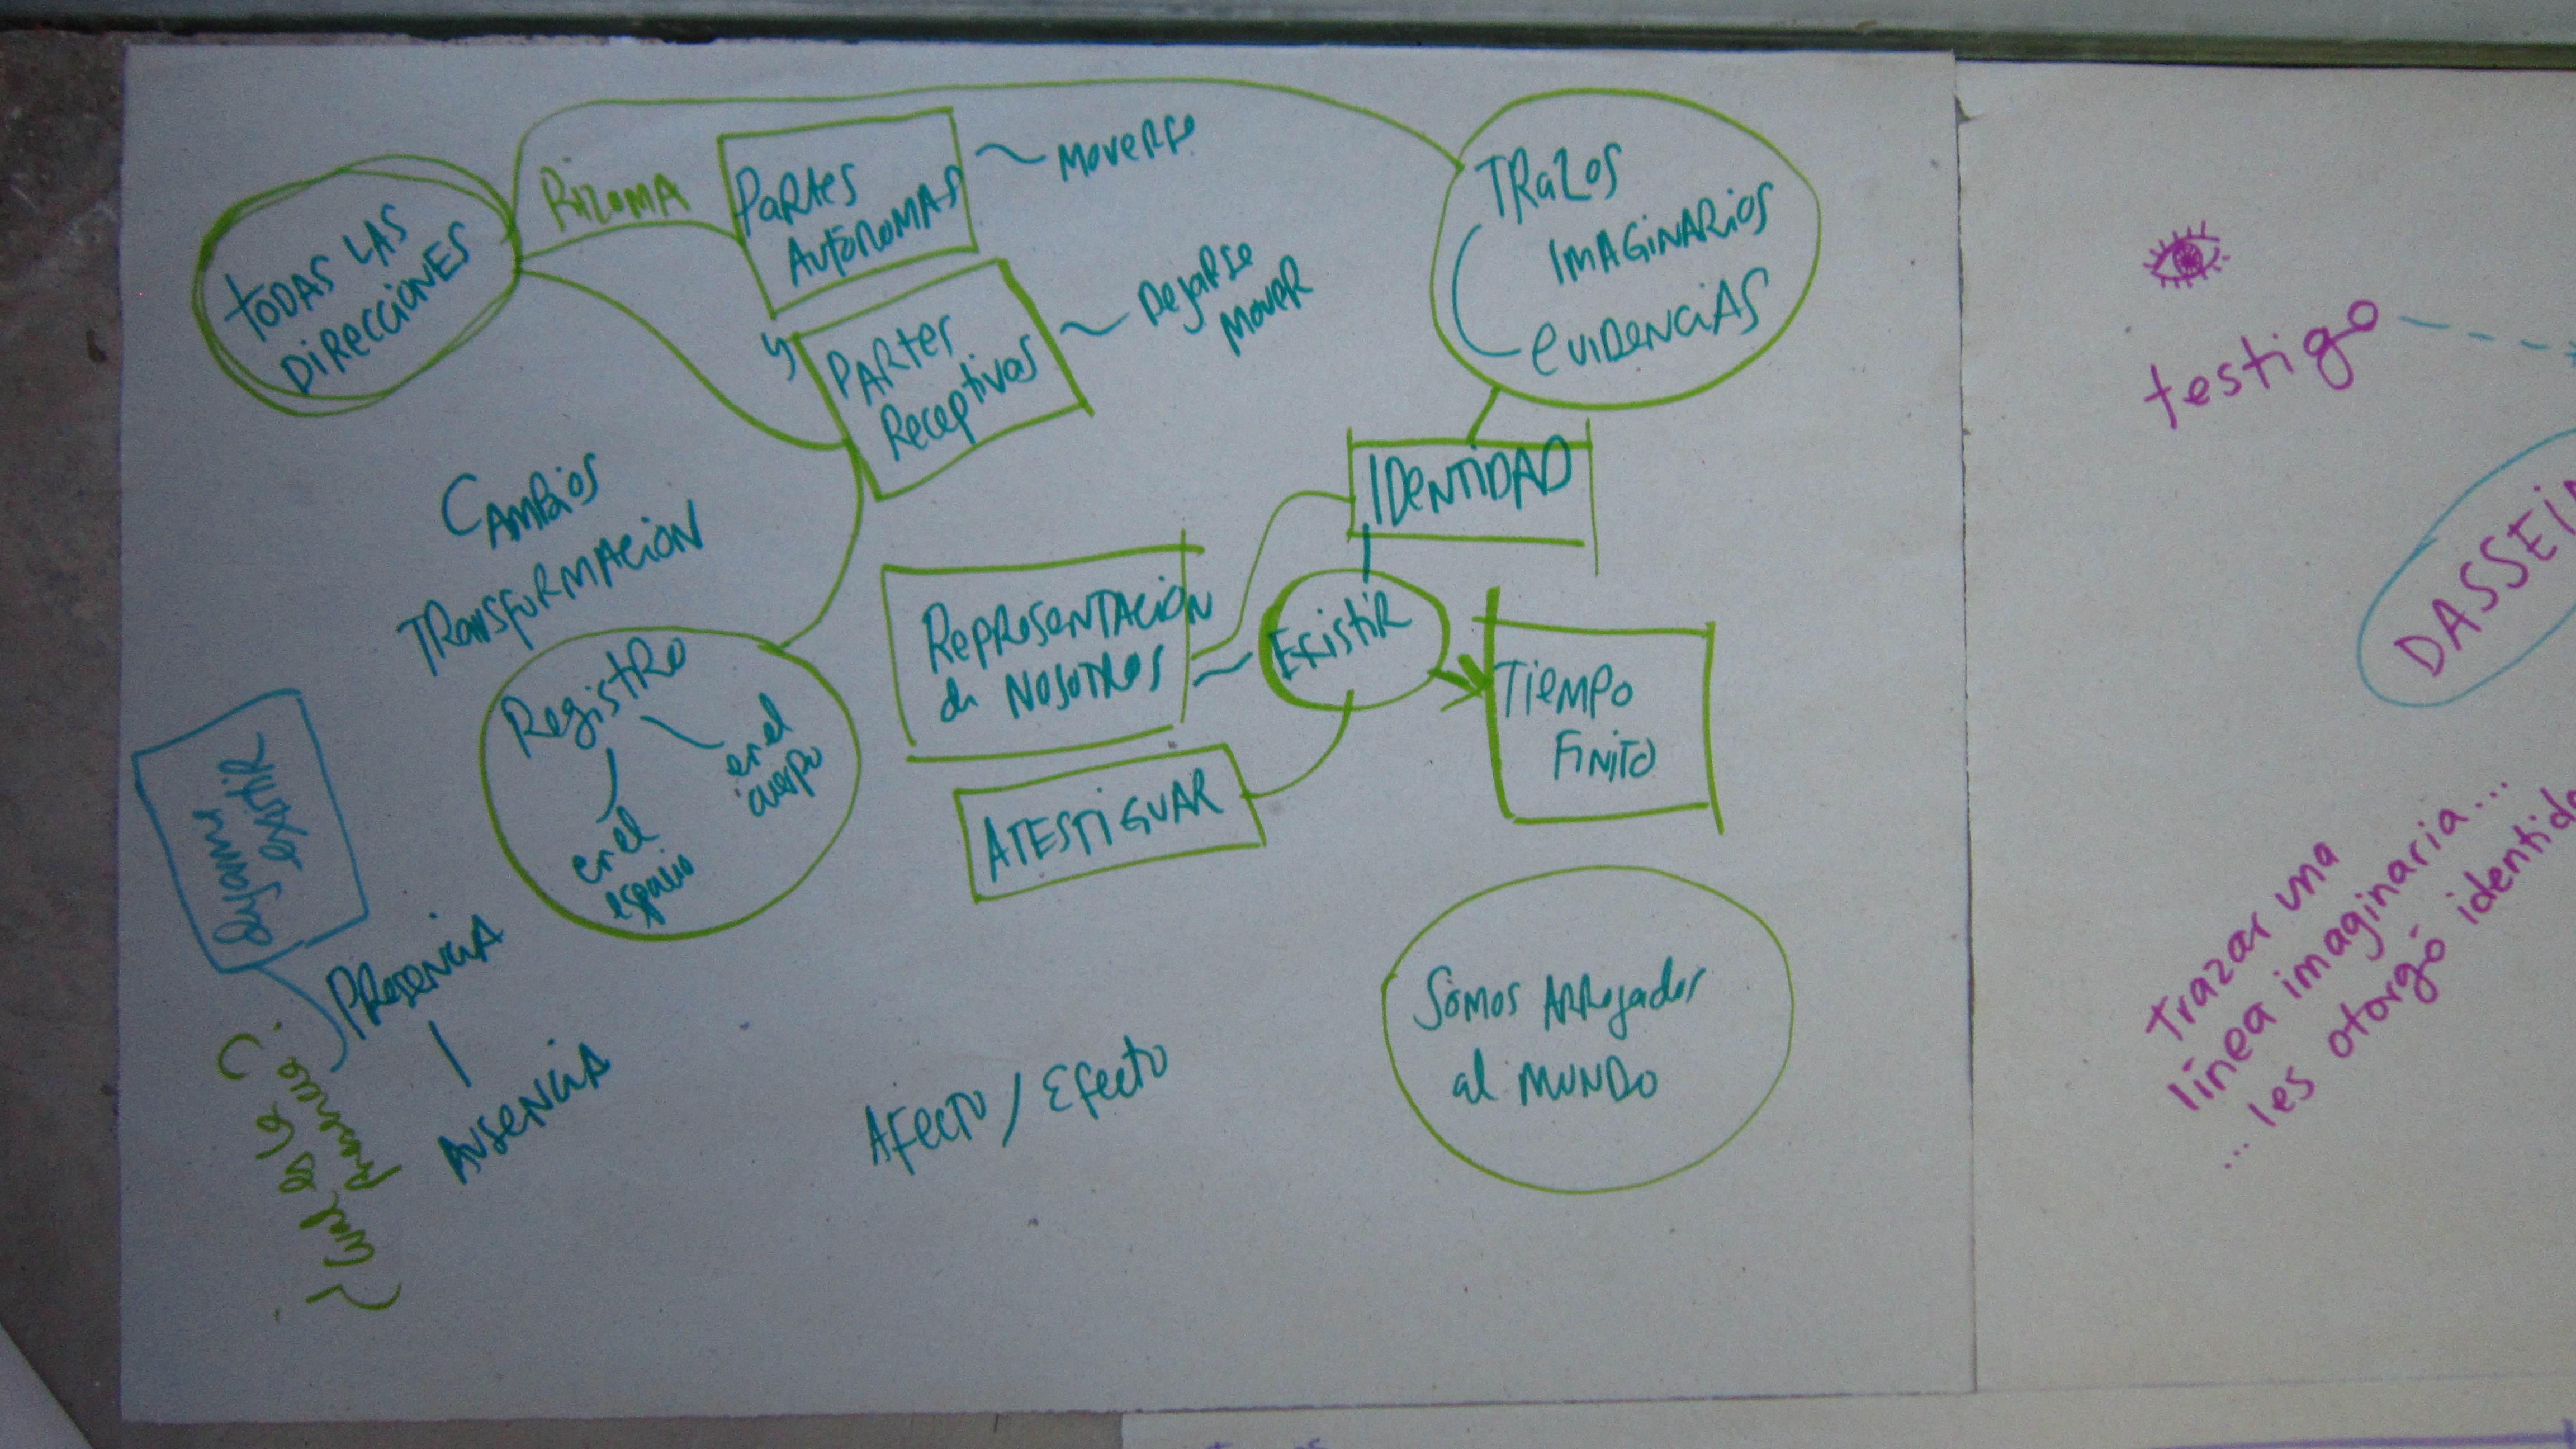 TODAS LAS
DIRECCIONES
RIZOMA
PARTES
AUTÓNOMAS
MOVERSE
y
PARTES
RECEPTIVAS
DEJARSE
MOVER
TRAZOS
IMAGINARIOS
EVIDENCIAS
IDENTIDAD
CAMBIOS
TRANSFORMACION
REPRESENTACIÓN
de NOSOTROS
EXISTIR
TIEMPO
FINITO
ATESTIGUAR
Registro
en el
cuerpo
en el
espacio
existir
PRESENCIA
AUSENCIA
¿Cual es la
presencia?
AFECTO / EFECTO
Somos ARROJADOS
al MUNDO
testigo
Trazar una
línea imaginaria...
...les otorgó